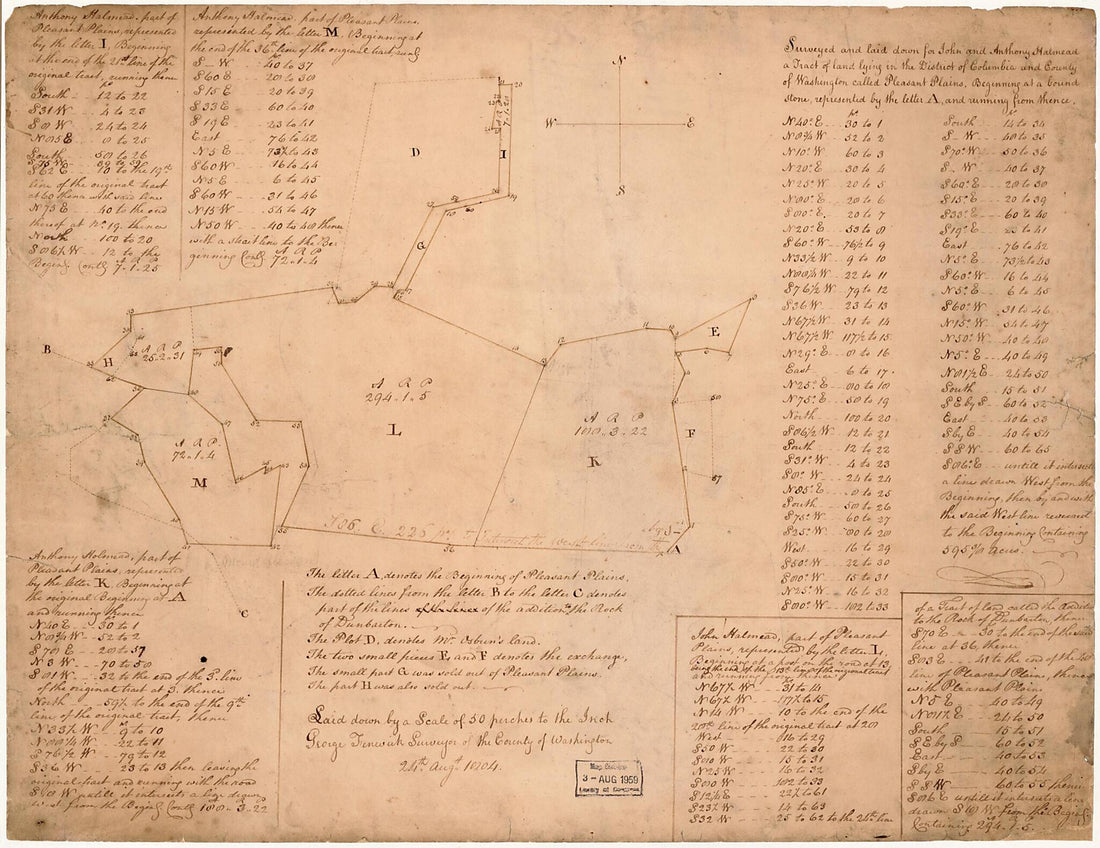 Anthony Holmead, part of
Pleasant Plains, represented
by the letter I, Beginning
at the end of the 21st line of the
original tract, running thence
South - 12 to 22
S 31 W - 4 to 23
S 8 W - 24 to 24
N 85 E - 8 to 25
South - 50 to 26
S 62 E - 70 to the 19th
line of the original tract
at 60 thence with said line
N 75 E - 40 to the end
thereof at No. 19. thence
North - 100 to 20
S 86½ W - 12 to the
Begin'g Cont'g 7-1-25
Anthony Holmead, part of Pleasant Plains,
represented by the letter M Beginning at
the end of the 36th line of the original tract, run'g
S - W - 40 to 37
S 60 E - 20 to 38
S 15 E - 20 to 39
S 33 E - 60 to 40
S 19 E - 23 to 41
East - 76 to 42
N 5 E - 73½ to 43
S 60 W - 16 to 44
N 5 E - 6 to 45
S 60 W - 31 to 46
N 15 W - 54 to 47
N 50 W - 40 to 48 thence
with a strait line to the Be
ginning Cont'g 72-1-4
Surveyed and laid down for John and Anthony Holmead
a Tract of land lying in the District of Columbia and County
of Washington called Pleasant Plains, Beginning at a bound
stone, represented by the letter A, and running from thence.
N 40° E - 30 to 1
N 8¾ W - 52 to 2
N 10° W - 60 to 3
N 20° E - 30 to 4
N 25° W - 20 to 5
N 80° E - 20 to 6
S 80° E - 20 to 7
N 20° E - 53 to 8
S 60° W - 76½ to 9
N 33½ W - 9 to 10
N 88¼ W - 22 to 11
S 76½ W - 79 to 12
S 36 W - 23 to 13
N 67½ W - 31 to 14
N 67½ W - 117½ to 15
N 29° E - 8 to 16
East - 6 to 17
N 25° E - 80 to 18
N 75° E - 50 to 19
North - 100 to 20
S 86½ W - 12 to 21
South - 12 to 22
S 31° W - 4 to 23
S 8° W - 24 to 24
N 85° E - 8 to 25
South - 50 to 26
S 75° W - 60 to 27
S 25° W - 80 to 28
West - 16 to 29
S 50° W - 22 to 30
S 80° W - 15 to 31
N 25° W - 16 to 32
S 80° W - 102 to 33
South - 14 to 34
S - W - 48 to 35
S 70° W - 50 to 36
S - W - 40 to 37
S 60° E - 20 to 38
S 15° E - 20 to 39
S 33° E - 60 to 40
S 19° E - 23 to 41
East - 76 to 42
N 5° E - 73½ to 43
S 60° W - 16 to 44
N 5° E - 6 to 45
S 60° W - 31 to 46
N 15° W - 54 to 47
N 50° W - 40 to 48
N 5° E - 40 to 49
N 81½ E - 24 to 50
South - 15 to 51
S E by S - 60 to 52
East - 40 to 53
S by E - 40 to 54
S S W - 60 to 55
S 86° E - untill it intersects
a line drawn West from the
Beginning, then by and with
the said West line reversed
to the Beginning Containing
595 acres.
N
W
E
S
D
I
A R P
7-1-25
G
E
B
H
A R P
25-2-31
A R P
294-1-5
L
A R P
188-3-22
K
F
A R P
72-1-4
M
A
C
Anthony Holmead, part of
Pleasant Plains, represented
by the letter K Beginning at
the original Beginning at A
and running thence
N 40 E - 30 to 1
N 8¾ W - 52 to 2
S 78 E - 20 to 57
N 3 W - 70 to 58
S 81 W - 32 to the end of the 3d line
of the original tract at 3. thence
North - 59½ to the end of the 9th
line of the original tract, thence
N 33½ W - 9 to 10
N 88¼ W - 22 to 11
S 76½ W - 79 to 12
S 36 W - 23 to 13 then leaving the
original tract and running with the road
S 18 W untill it intersects a line drawn
West from the Begin'g Cont'g 188-3-22
The letter A, denotes the Beginning of Pleasant Plains,
The dotted lines from the letter B to the letter C denotes
part of the lines of the addition to the Rock
of Dunbarton.
The Plot D, denotes Mr. Osburn's land.
The two small pieces E and F denotes the exchange,
The small part G was sold out of Pleasant Plains.
The part H was also sold out.
Laid down by a Scale of 50 perches to the Inch
George Fenwick Surveyor of the County of Washington
24th Augt 1804.
Map Division
3-AUG 1959
Library of Congress
John Holmead, part of Pleasant
Plains, represented by the letter L,
Beginning at a post on the road at 13,
and running from thence
N 67½ W - 31 to 14
N 67½ W - 117½ to 15
N 14 W - 10 to the end of the
28th line of the original tract at 28
West - 16 to 29
S 50 W - 22 to 30
S 80 W - 15 to 31
N 25 W - 16 to 32
S 80 W - 102 to 33
S 12½ E - 22½ to 61
S 23½ W - 14 to 63
S 32 W - 25 to 62 to the 24th line
of a Tract of land called the Addition
to the Rock of Dunbarton, thence
S 70 E - 30 to the end of the said
line at 36, thence
S 83 E - 41 to the end of the 48th
line of Pleasant Plains, thence
with Pleasant Plains
N 5 E - 40 to 49
N 81½ E - 24 to 50
South - 15 to 51
S E by S - 60 to 52
East - 40 to 53
S by E - 40 to 54
S S W - 60 to 55 thence
S 86 E untill it intersects a line
drawn S 18 W from the Begin'g
Containing 294-1-5.